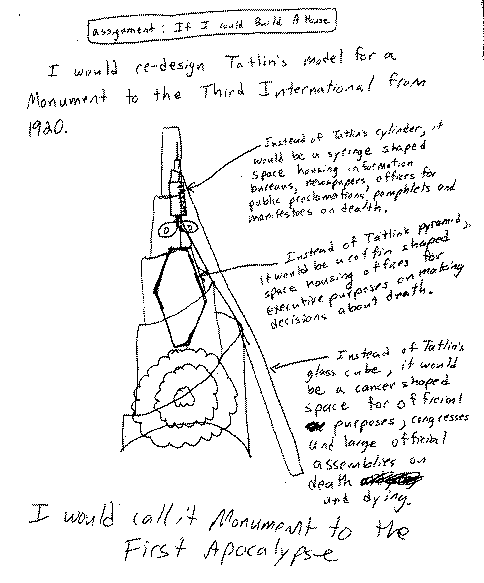 assignment: If I could Build A House
I would re-design Tatlin's model for a
Monument to the Third International from
1920.
Instead of Tatlin's cylinder, it
would be a syringe shaped
space housing information
bureaus, newspapers, offices for
public proclamations, pamphlets and
manifestoes on death.
Instead of Tatlin's pyramid,
it would be a coffin shaped
space housing offices for
executive purposes on making
decisions about death.
Instead of Tatlin's
glass cube, it would
be a cancer shaped
space for official
purposes, congresses
and large official
assemblies on
death
and dying.
I would call it Monument to the
First Apocalypse